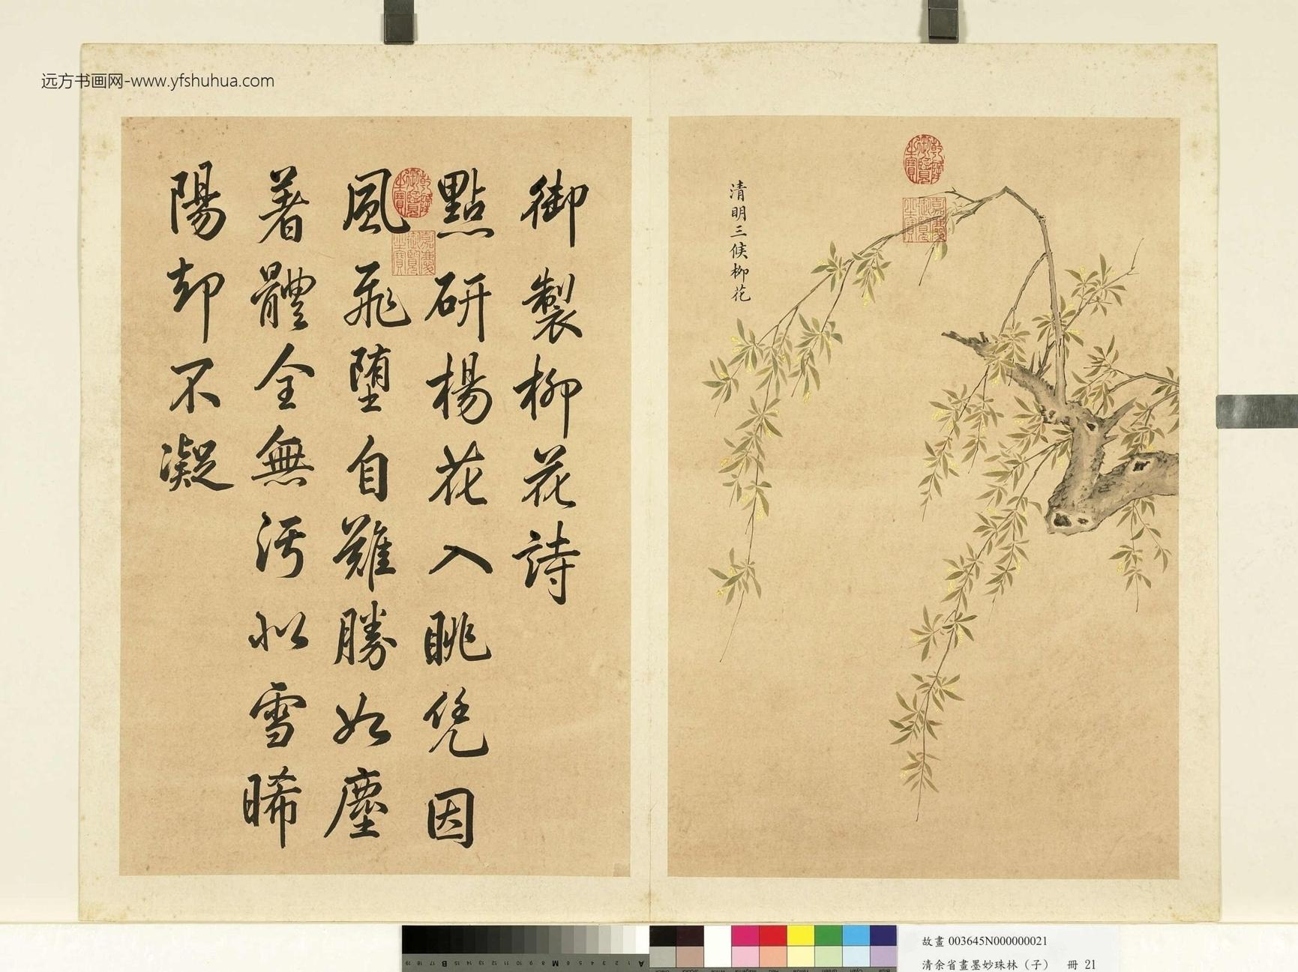 远方书画网-www.yfshuhua.com
清明三候柳花
御製柳花詩
點研楊花入眺凭因
風飛墮自難勝如塵
著體全無污似雪晞
陽却不凝
故畫 003645N000000021
清余省畫墨妙珠林（子） 冊 21